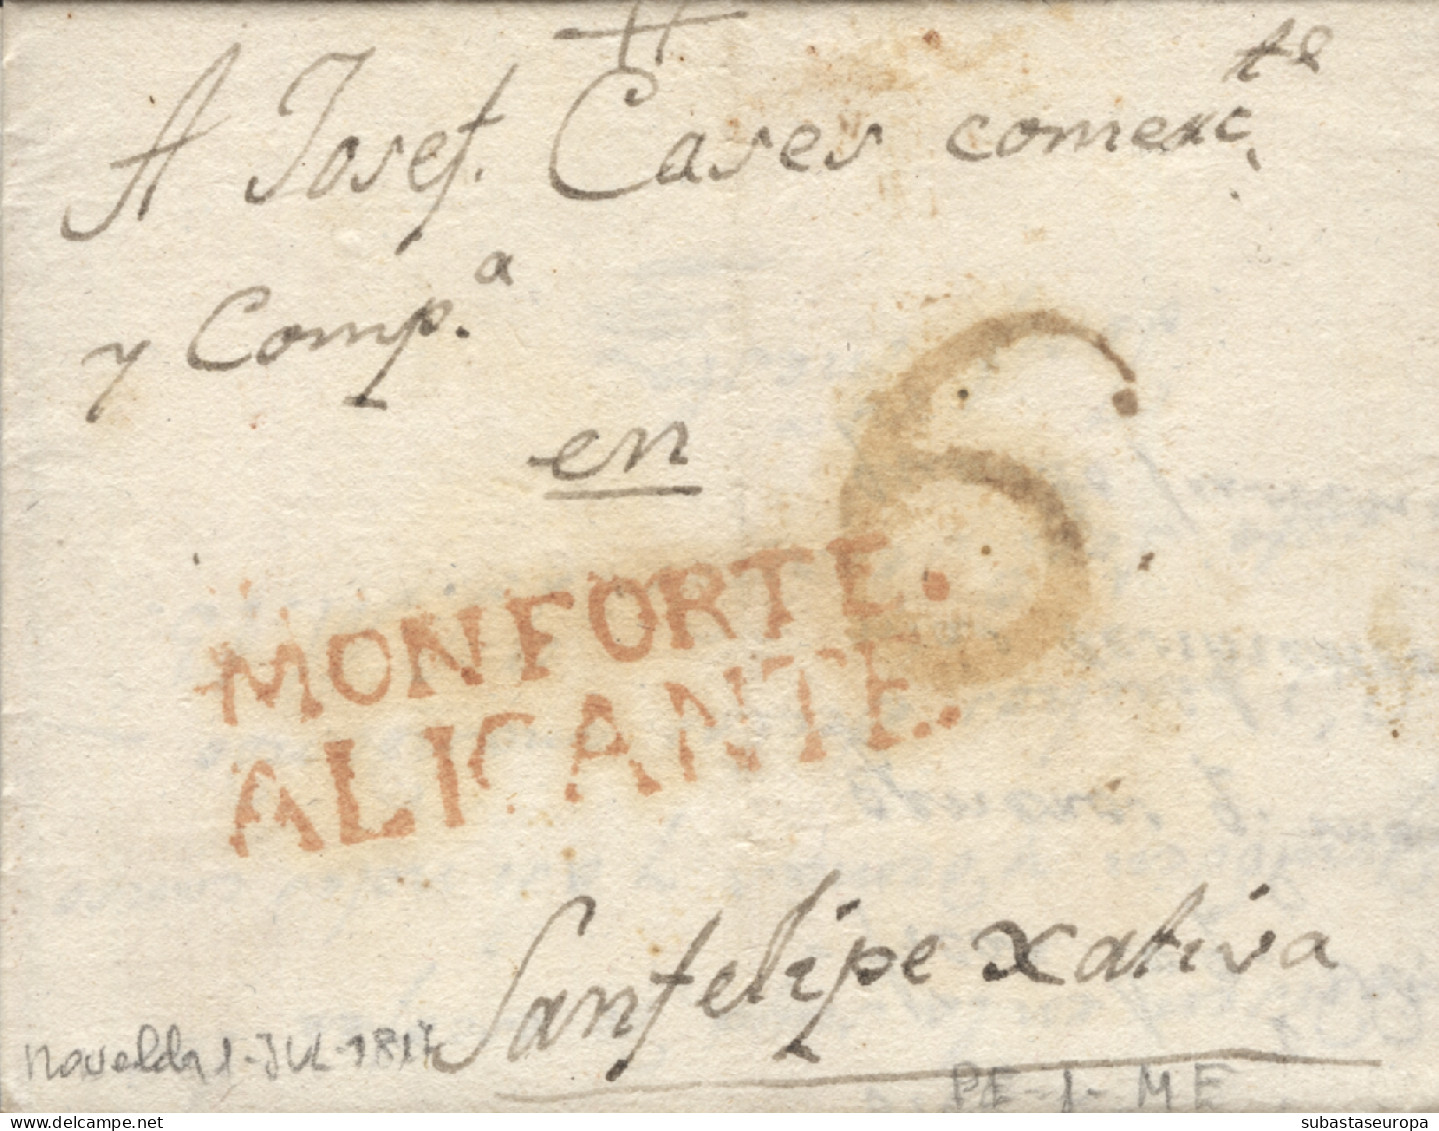 A Josef. Cases comerc.te
y Comp.a
en
6
MONFORTE.
ALICANTE.
Sanfelipe Xativa
Novelda 1-JUL-181
PE-1-ME
subastaseuropa